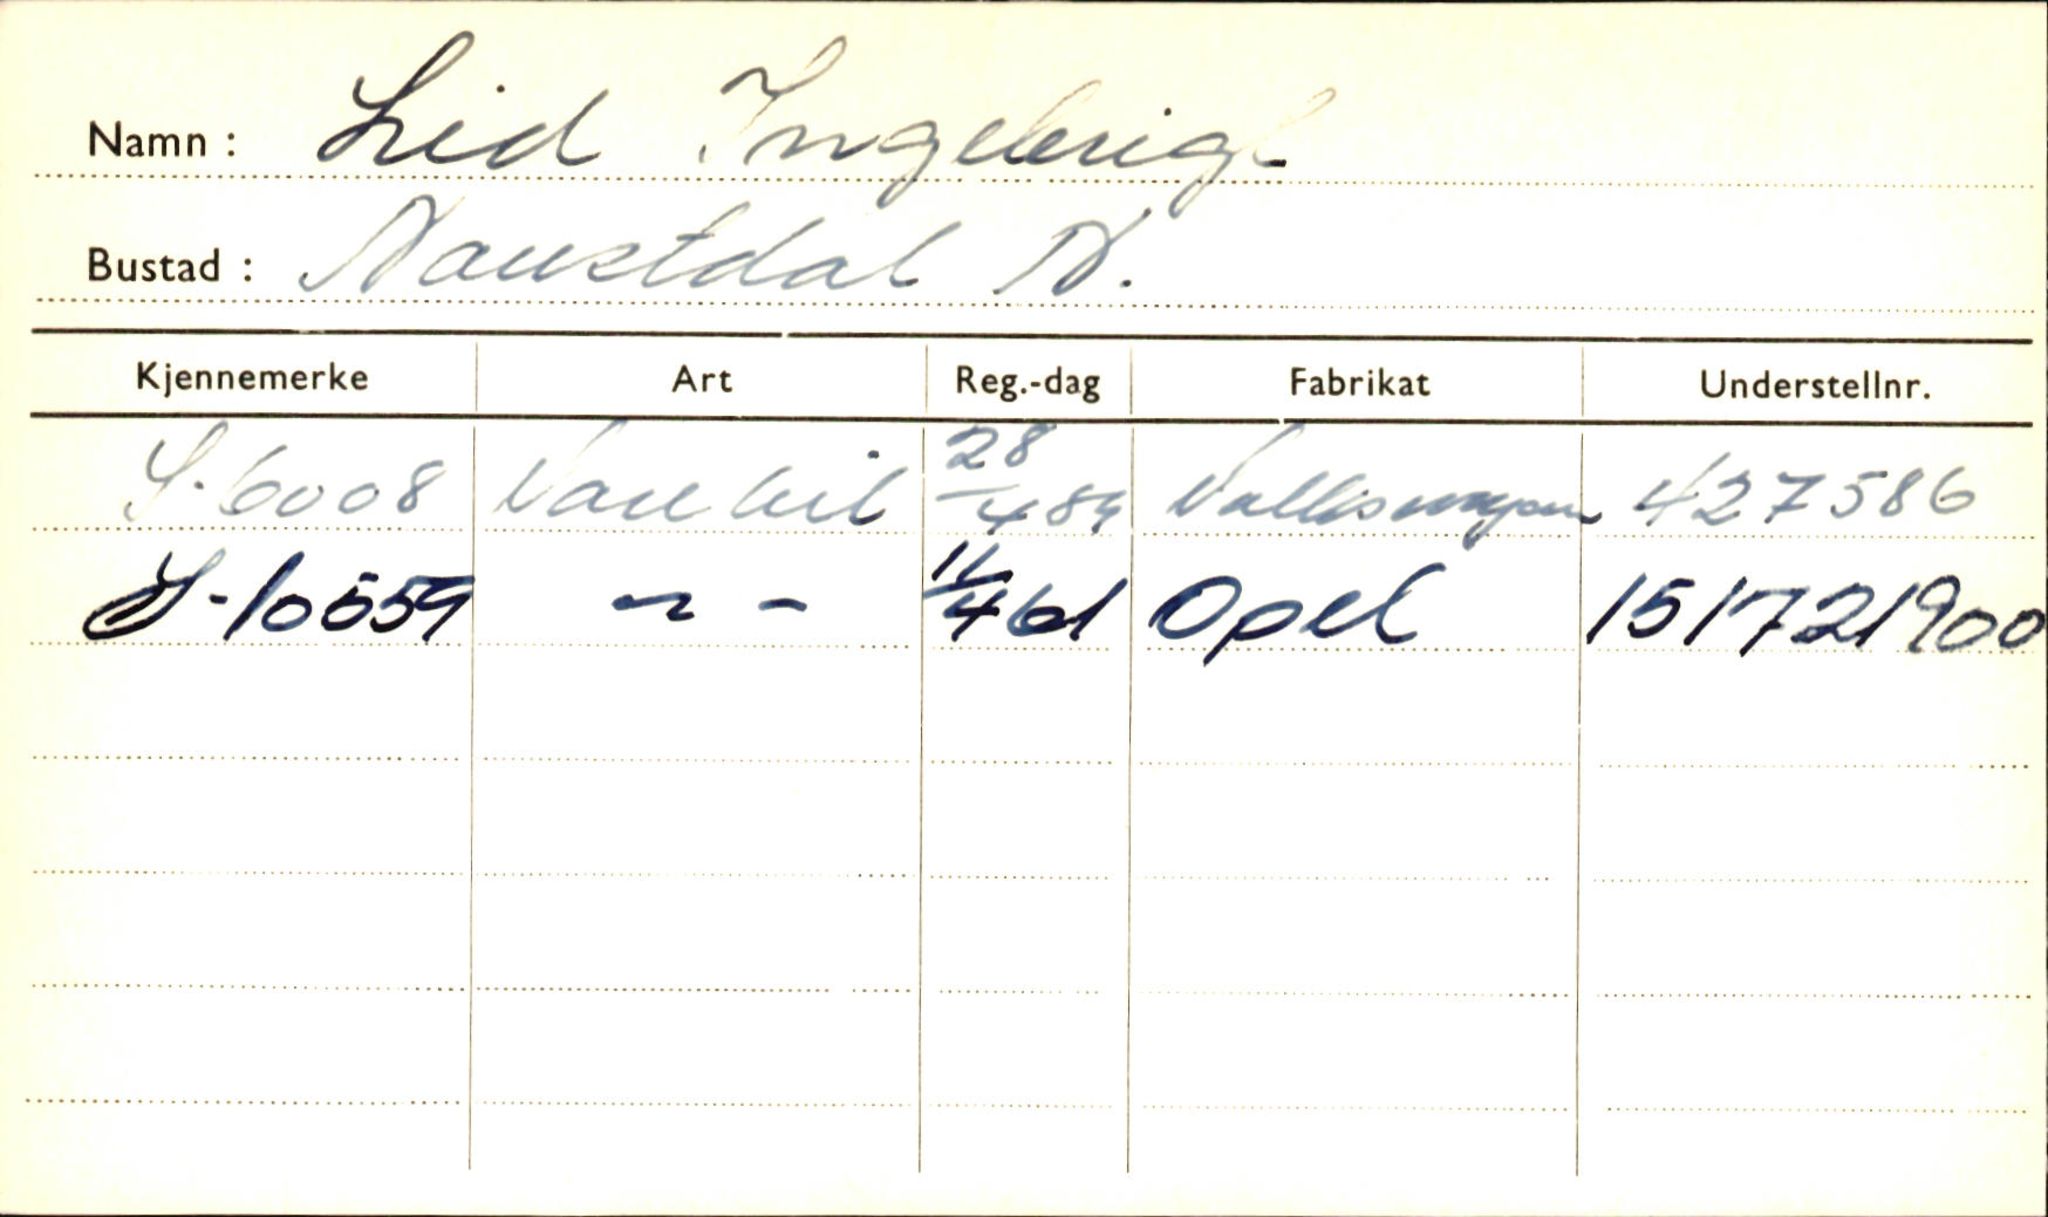 Namn : Lid Ingebrigt
Bustad : Naustdal N.
Kjennemerke Art Reg.-dag Fabrikat Understellnr.
S-6008 Varebil 28/4 59 Volkswagen 427586
S-10559 -"- 11/4 61 Opel 151721900